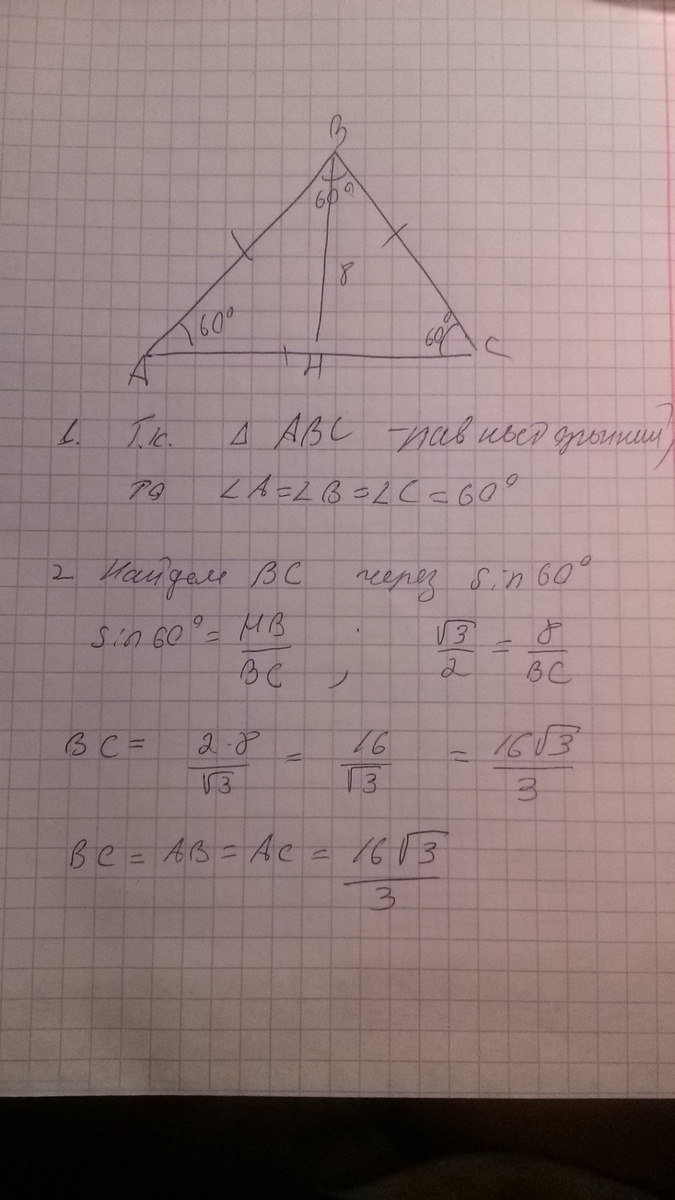 B
60°
8
60°
60°
A
H
C
1. Т.к. Δ ABC -
то ∠A=∠B=∠C=60°
2 Найдем BC через sin60°
sin60° = HB/BC ; √3/2 = 8/BC
BC = 2·8/√3 = 16/√3 = 16√3/3
BC = AB = AC = 16√3/3